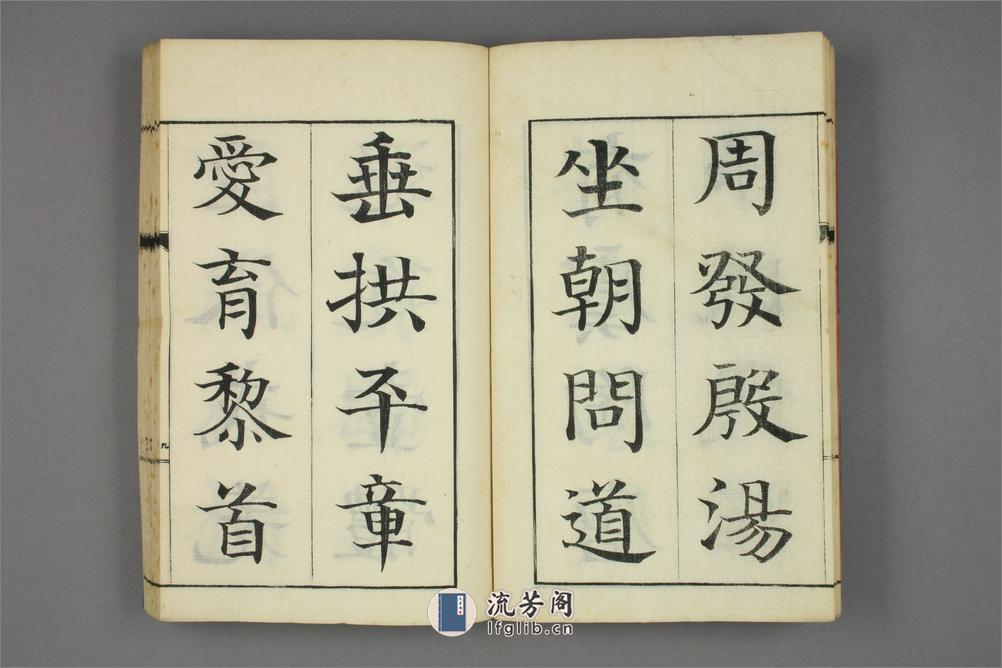 周發殷湯
坐朝問道
垂拱平章
愛育黎首
九
流芳阁
lfglib.cn